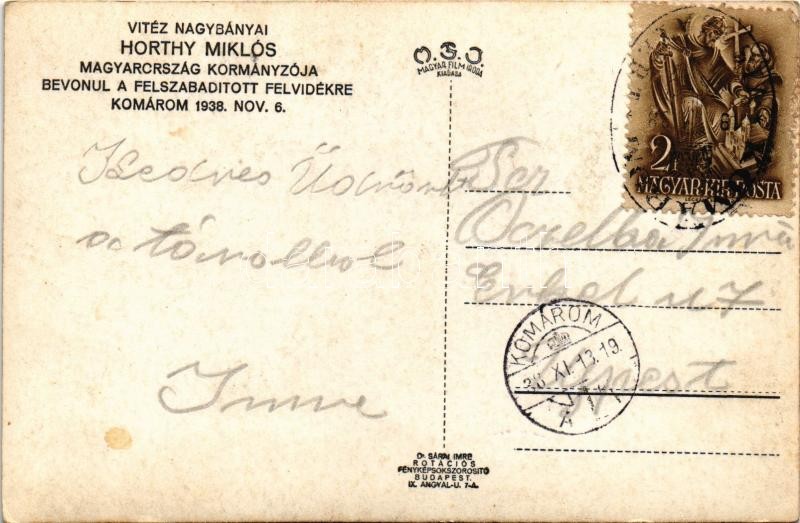 VITÉZ NAGYBÁNYAI
HORTHY MIKLÓS
MAGYARCRSZÁG KORMÁNYZÓJA
BEVONUL A FELSZABADITOTT FELVIDÉKRE
KOMÁROM 1938. NOV. 6.
MAGYAR FILM IRODA
KIADÁSA
2
MAGYAR·KIR·POSTA
Kedves
a távolból
Imre
Imre
Erkel u 7
Ujpest
KOMÁROM
38 XI. 13.19
A
Dr. SÁRAI IMRE
ROTÁCIÓS
FÉNYKÉPSOKSZOROSITÓ
BUDAPEST.
IX. ANGYAL-U. 7-A.